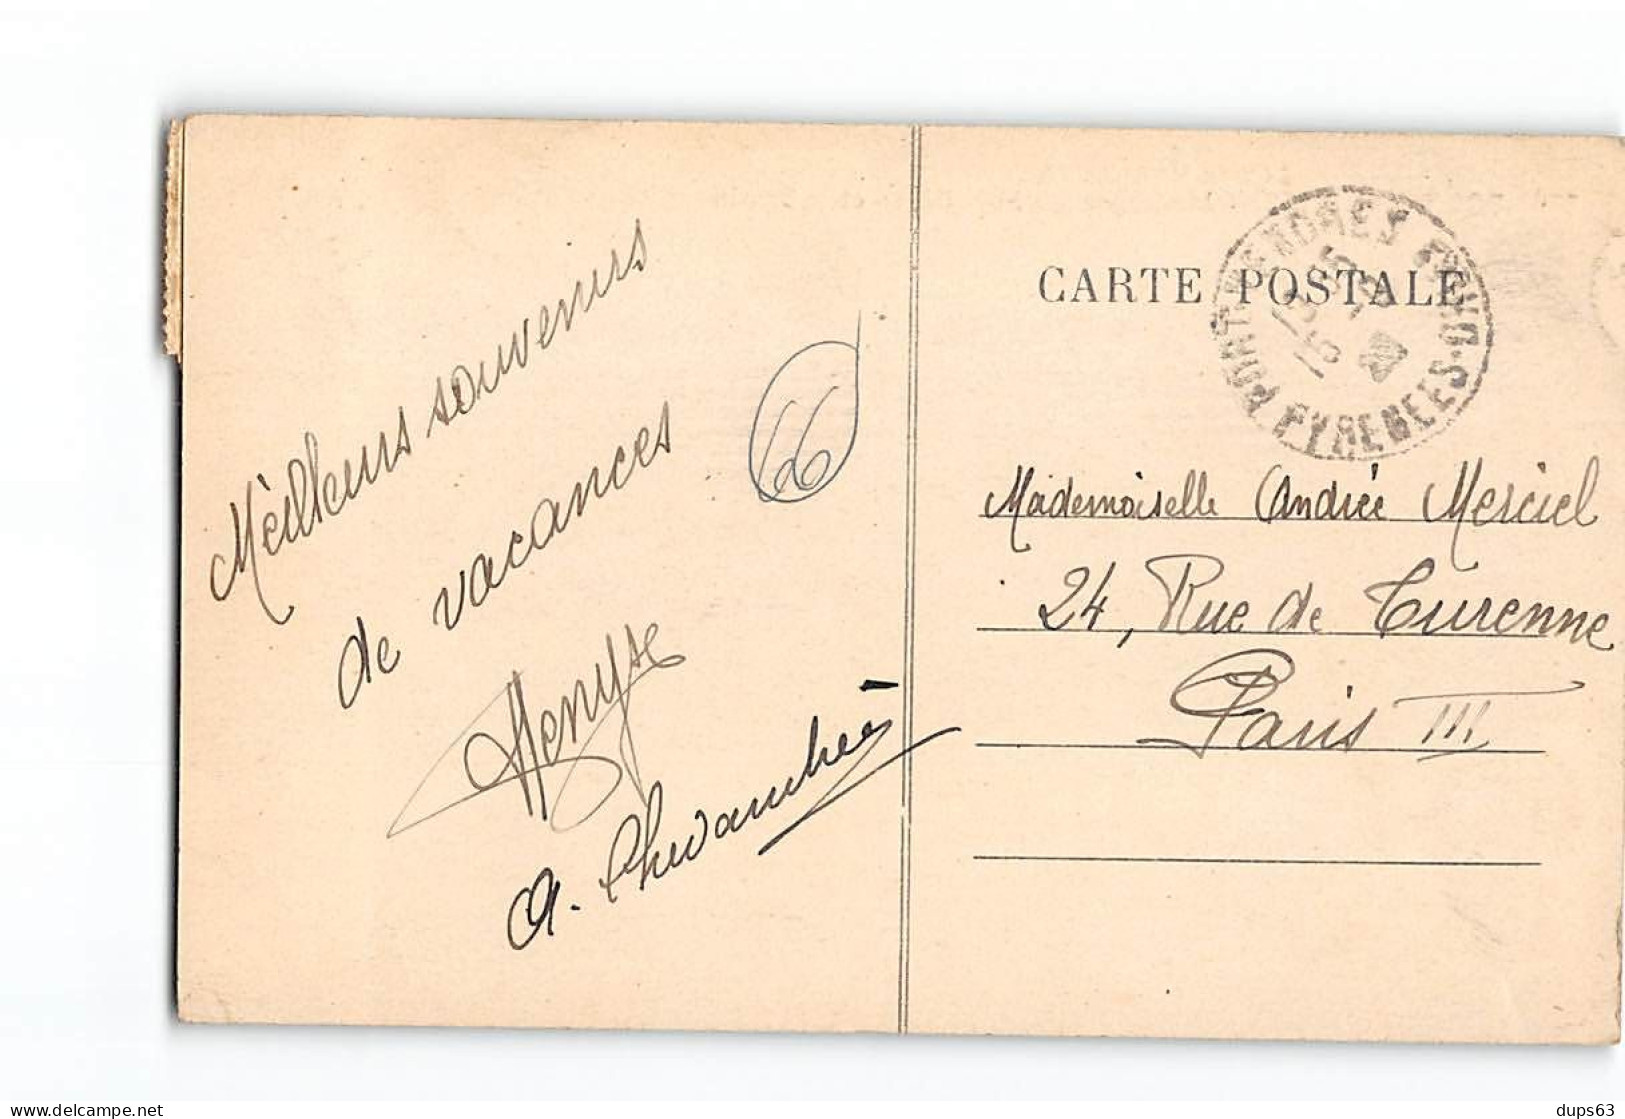 Meilleurs souvenirs
de vacances
66
A.
CARTE POSTALE
PORT-VENDRES
PYRENEES-O
Mademoiselle Andrée Merciel
24, Rue de Turenne
Paris III
delcampe.net
dups63